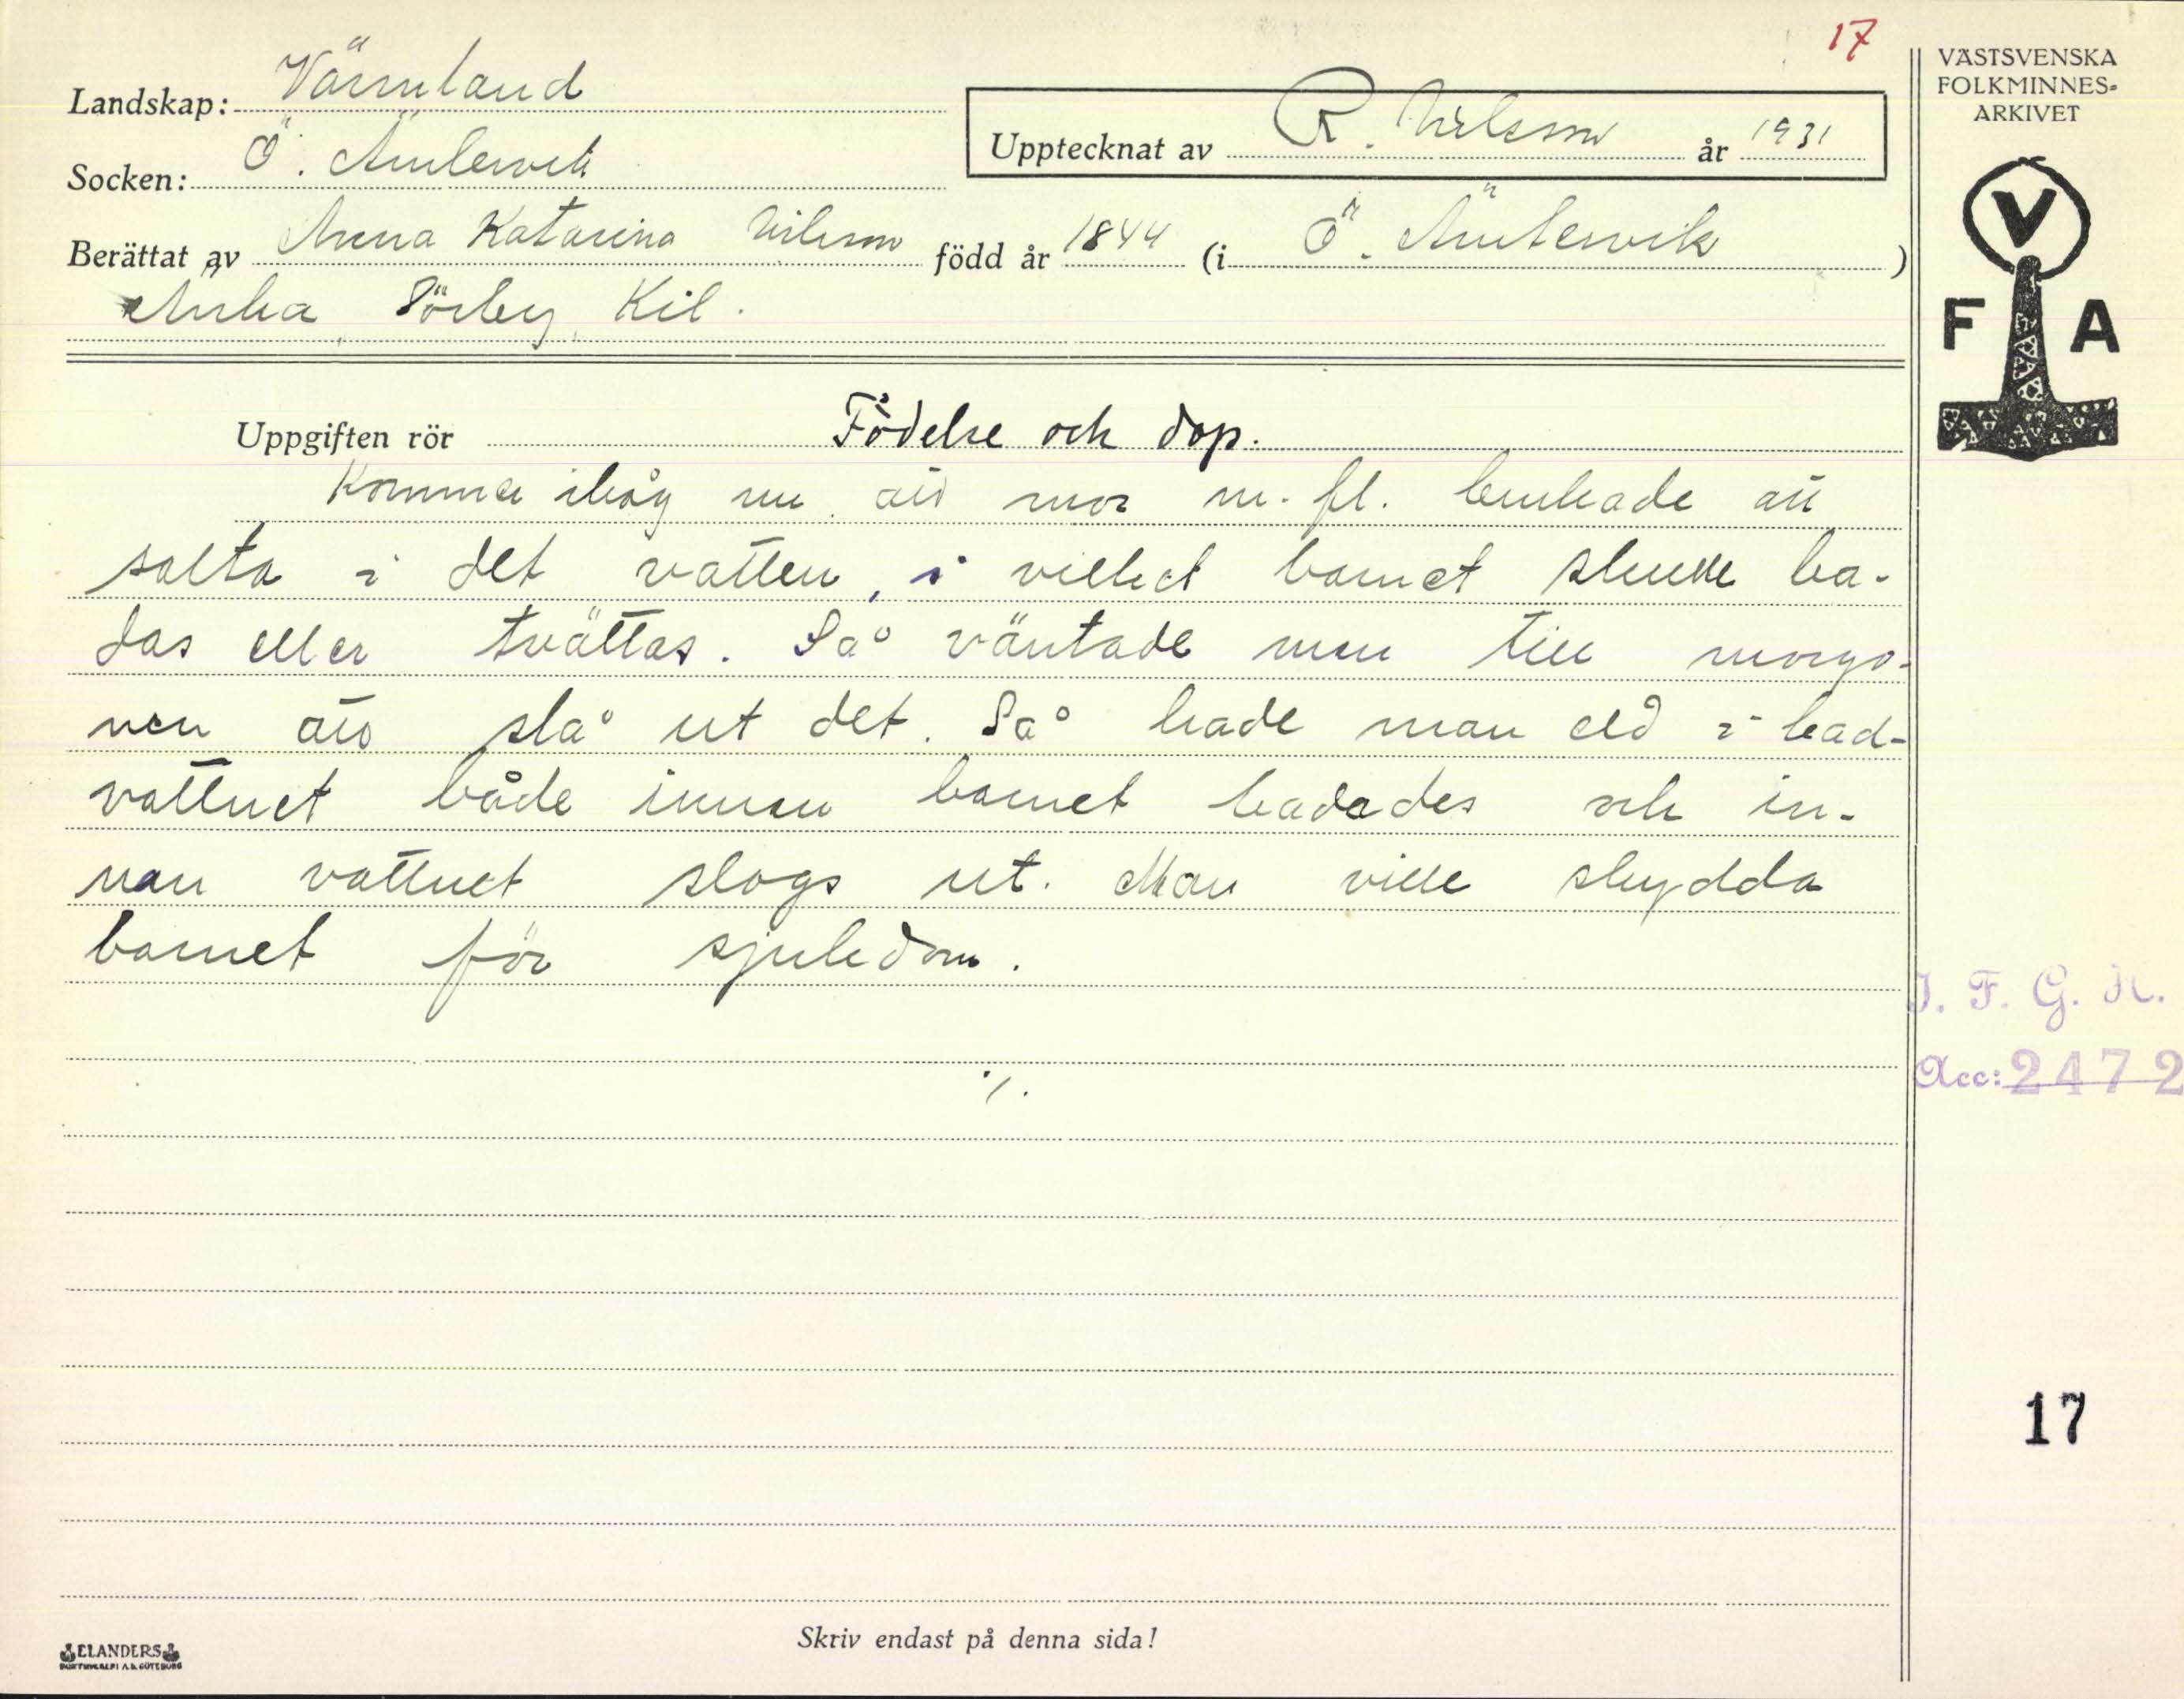 17
Landskap: Värmland
Socken: Ö. Ämtervik
Upptecknat av R. Nilsson år 1931
Berättat av Anna Katarina Nilsson född år 1844 (i Ö. Ämtervik)
Änka, Sörby, Kil.
VÄSTSVENSKA
FOLKMINNES-
ARKIVET
V
F A
Uppgiften rör Födelse och dop.
Kommer ihåg nu att mor m. fl. brukade att
salta i det vatten, i vilket barnet skulle ba-
das eller tvättas. Så väntade man till morgo-
nen att slå ut det. Så hade man eld i bad-
vattnet både innan barnet badades och in-
nan vattnet slogs ut. Man ville skydda
barnet för sjukdom.
./.
I. F. G. H.
Acc: 2472
17
Skriv endast på denna sida!
ELANDERS
BOKTRYCKERI A.B. GÖTEBORG